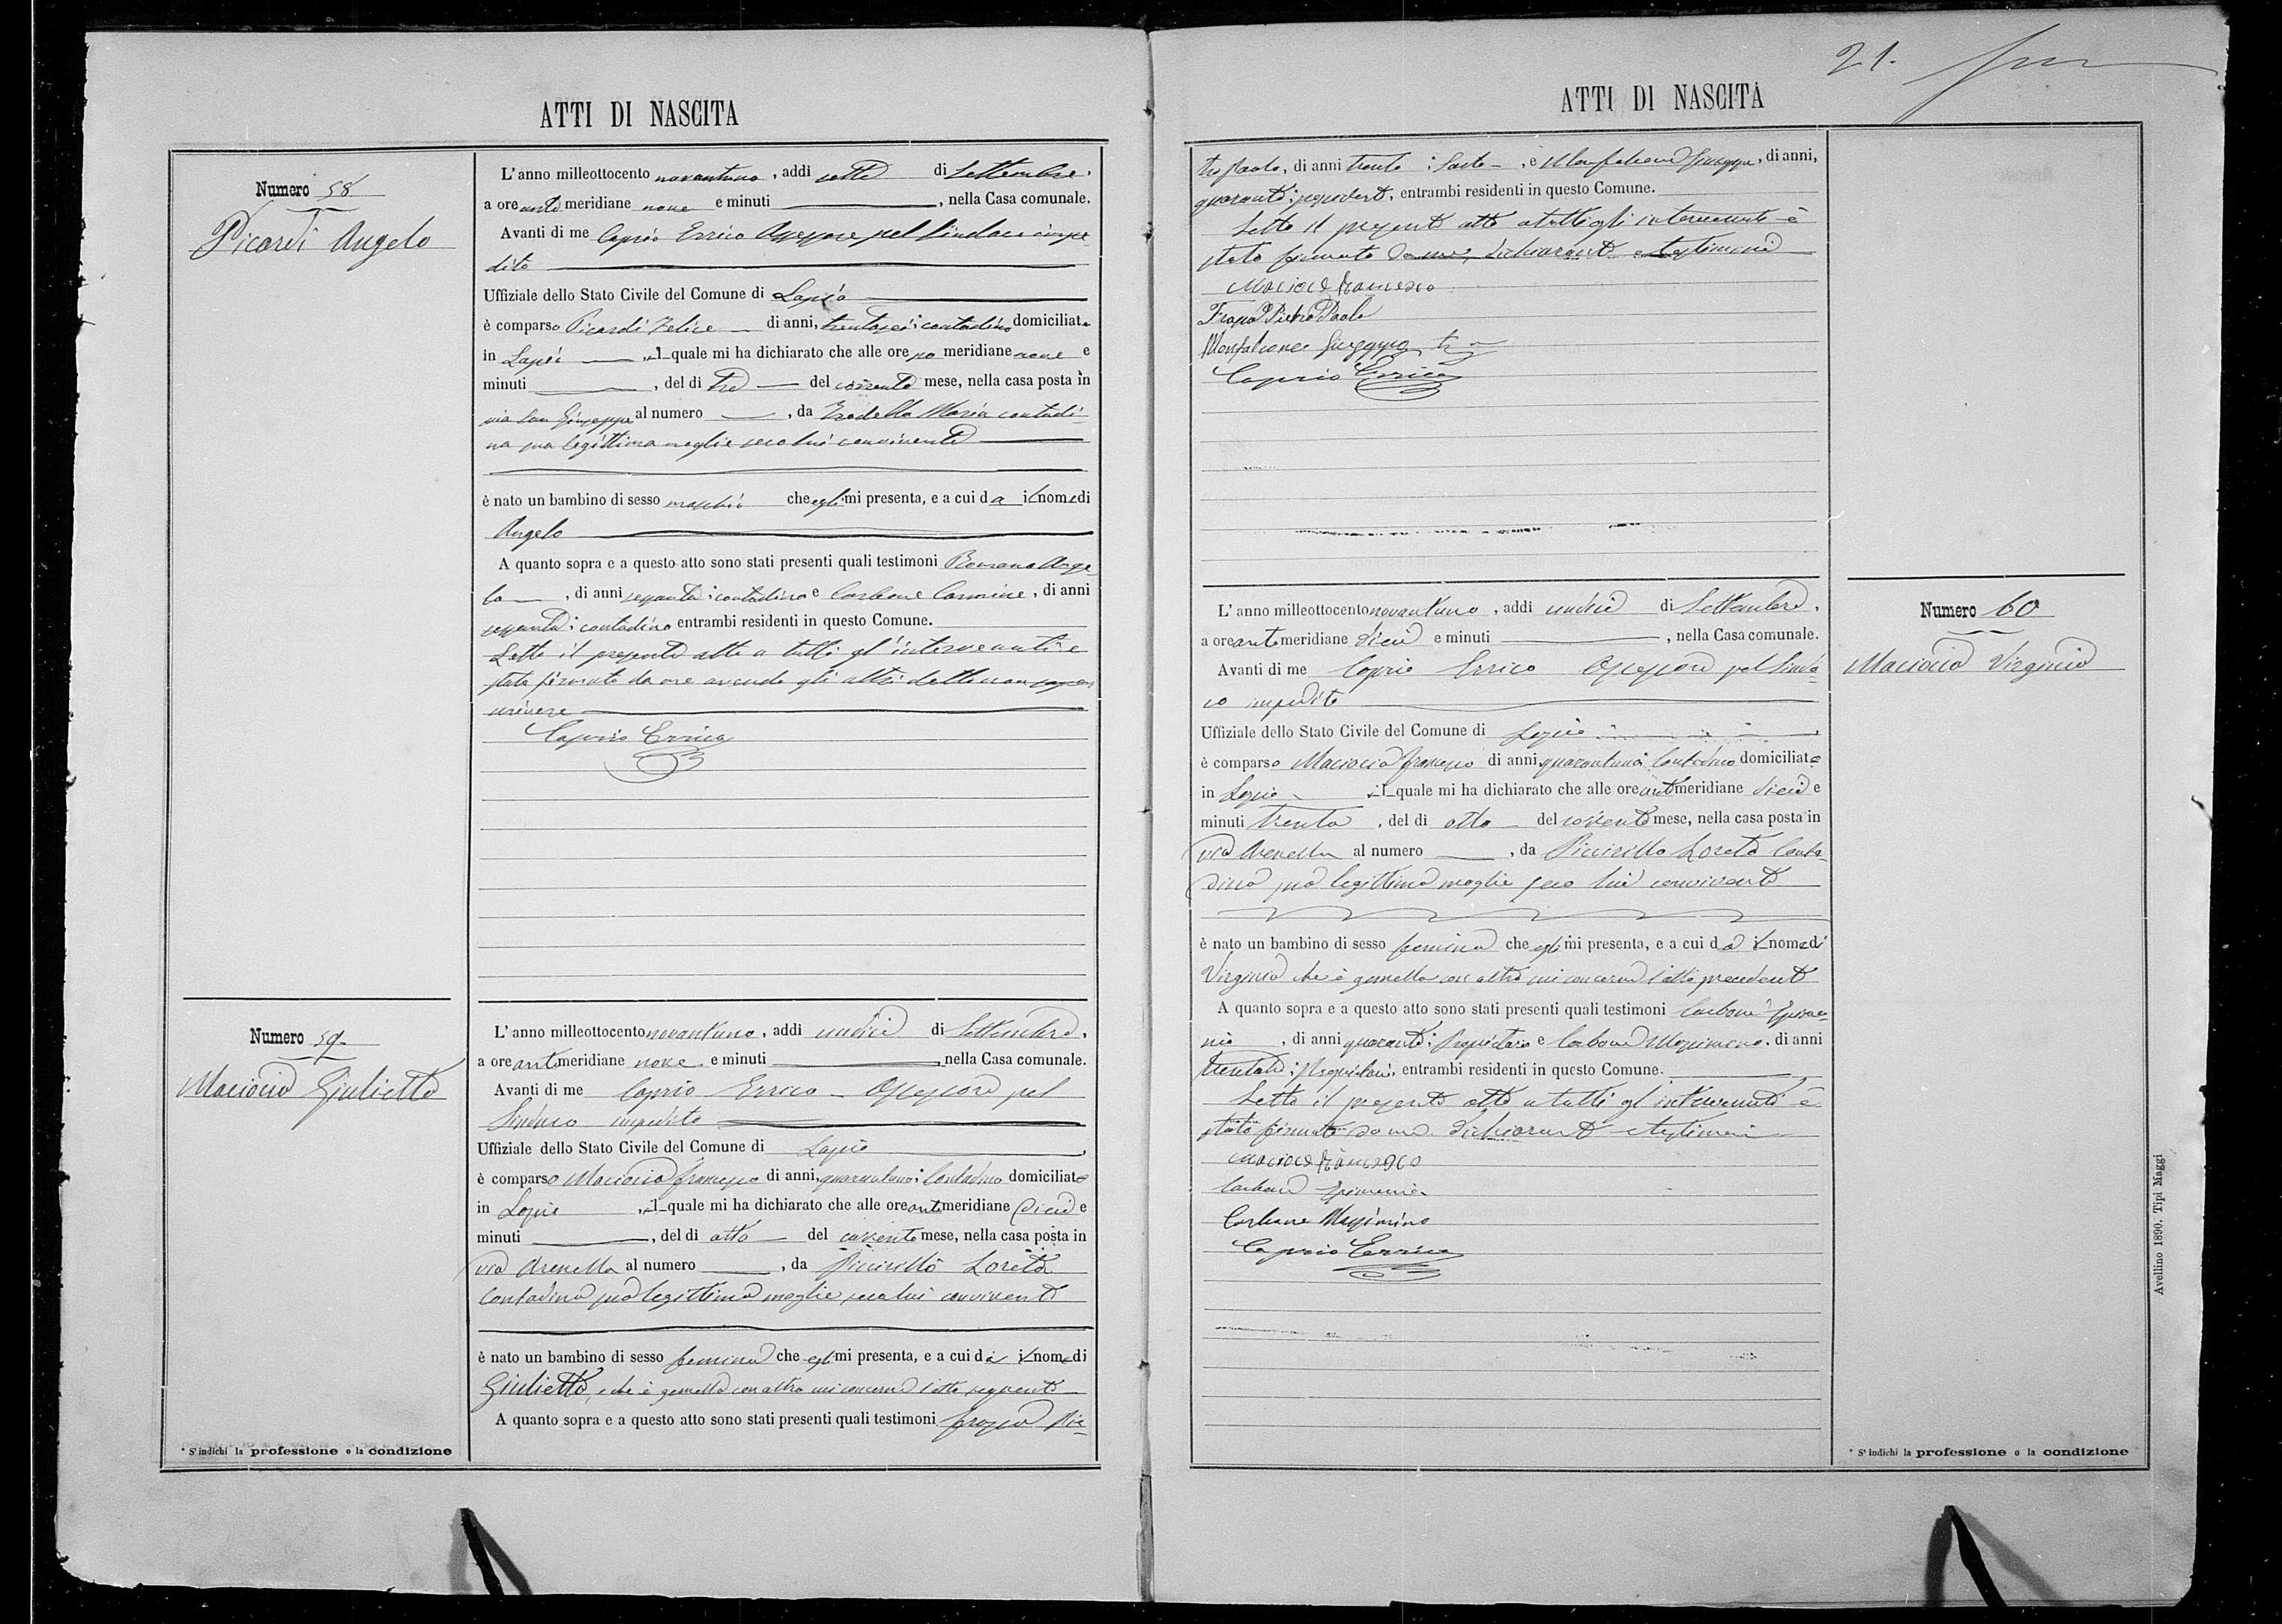 ATTI DI NASCITA
Numero 58
Picardi Angelo
L'anno milleottocento novantuno, addi sette di Settembre,
a ore anti meridiane nove e minuti, nella Casa comunale.
Avanti di me Caprio Errico Assessore pel Sindaco impe
dito
Uffiziale dello Stato Civile del Comune di Lapio
è comparso Picardi Felice di anni, trentasei; contadino domiciliato
in Lapio, il quale mi ha dichiarato che alle ore po meridiane nove e
minuti, del dì tre del corrente mese, nella casa posta in
via San Giuseppe al numero, da Maria contadi-
na sua legittima moglie seco lui convivente
è nato un bambino di sesso maschio che egli mi presenta, e a cui da il nome di
Angelo
A quanto sopra e a questo atto sono stati presenti quali testimoni Romano Ange-
lo, di anni sessanta; contadino e Carbone Carmine, di anni
sessanta; contadino entrambi residenti in questo Comune.
Letto il presente atto a tutti gl'intervenuti è
stato firmato da me avendo gli altri detto non saper
scrivere
Caprio Errico
Numero 59
Maciocia Giulietta
L'anno milleottocento novantuno, addi undici di Settembre,
a ore anti meridiane nove e minuti, nella Casa comunale.
Avanti di me Caprio Errico Assessore pel
Sindaco impedito
Uffiziale dello Stato Civile del Comune di Lapio
è comparso Maciocia Francesco di anni, quarantuno; Contadino domiciliato
in Lapio, il quale mi ha dichiarato che alle ore anti meridiane dieci e
minuti, del dì otto del corrente mese, nella casa posta in
via Arenella al numero, da Piccirillo Loreta
Contadina sua legittima moglie seco lui convivente
è nato un bambino di sesso femina che egli mi presenta, e a cui dà il nome di
Giulietta, che è gemella con altra cui concerne l'atto seguente
A quanto sopra e a questo atto sono stati presenti quali testimoni Pie-
* S'indichi la professione o la condizione
21.
ATTI DI NASCITA
tro Paolo, di anni trenta; Sarto, e Monfalcone Giuseppe, di anni,
quaranta; entrambi residenti in questo Comune.
Letto il presente atto a tutti gli intervenuti è
stato firmato da me, dichiarante e testimoni
Maciocia Francesco
Pietro Paolo
Monfalcone Giuseppe
Caprio Errico
Numero 60
Maciocia Virginia
L'anno milleottocento novantuno, addi undici di Settembre,
a ore anti meridiane dieci e minuti, nella Casa comunale.
Avanti di me Caprio Errico Assessore pel Sinda-
co impedito
Uffiziale dello Stato Civile del Comune di Lapio
è comparso Maciocia Francesco di anni quarantuno; Contadino domiciliato
in Lapio il quale mi ha dichiarato che alle ore anti meridiane dieci e
minuti trenta, del dì otto del corrente mese, nella casa posta in
via Arenella al numero, da Piccirillo Loreta Conta-
dina sua legittima moglie seco lui convivente
è nato un bambino di sesso femina che egli mi presenta, e a cui dà il nome di
Virginia che è gemella con altra cui concerne l'atto precedente
A quanto sopra e a questo atto sono stati presenti quali testimoni Carbone Epime-
nio, di anni quaranta; proprietario e Carbone Massimino, di anni
trenta; proprietari, entrambi residenti in questo Comune.
Letto il presente atto a tutti gl'intervenuti è
stato firmato da me dichiarante e testimoni
Maciocia Francesco
Carbone Epimenio
Carbone Massimino
Caprio Errico
* S'indichi la professione o la condizione
Avellino 1890. Tipi Maggi